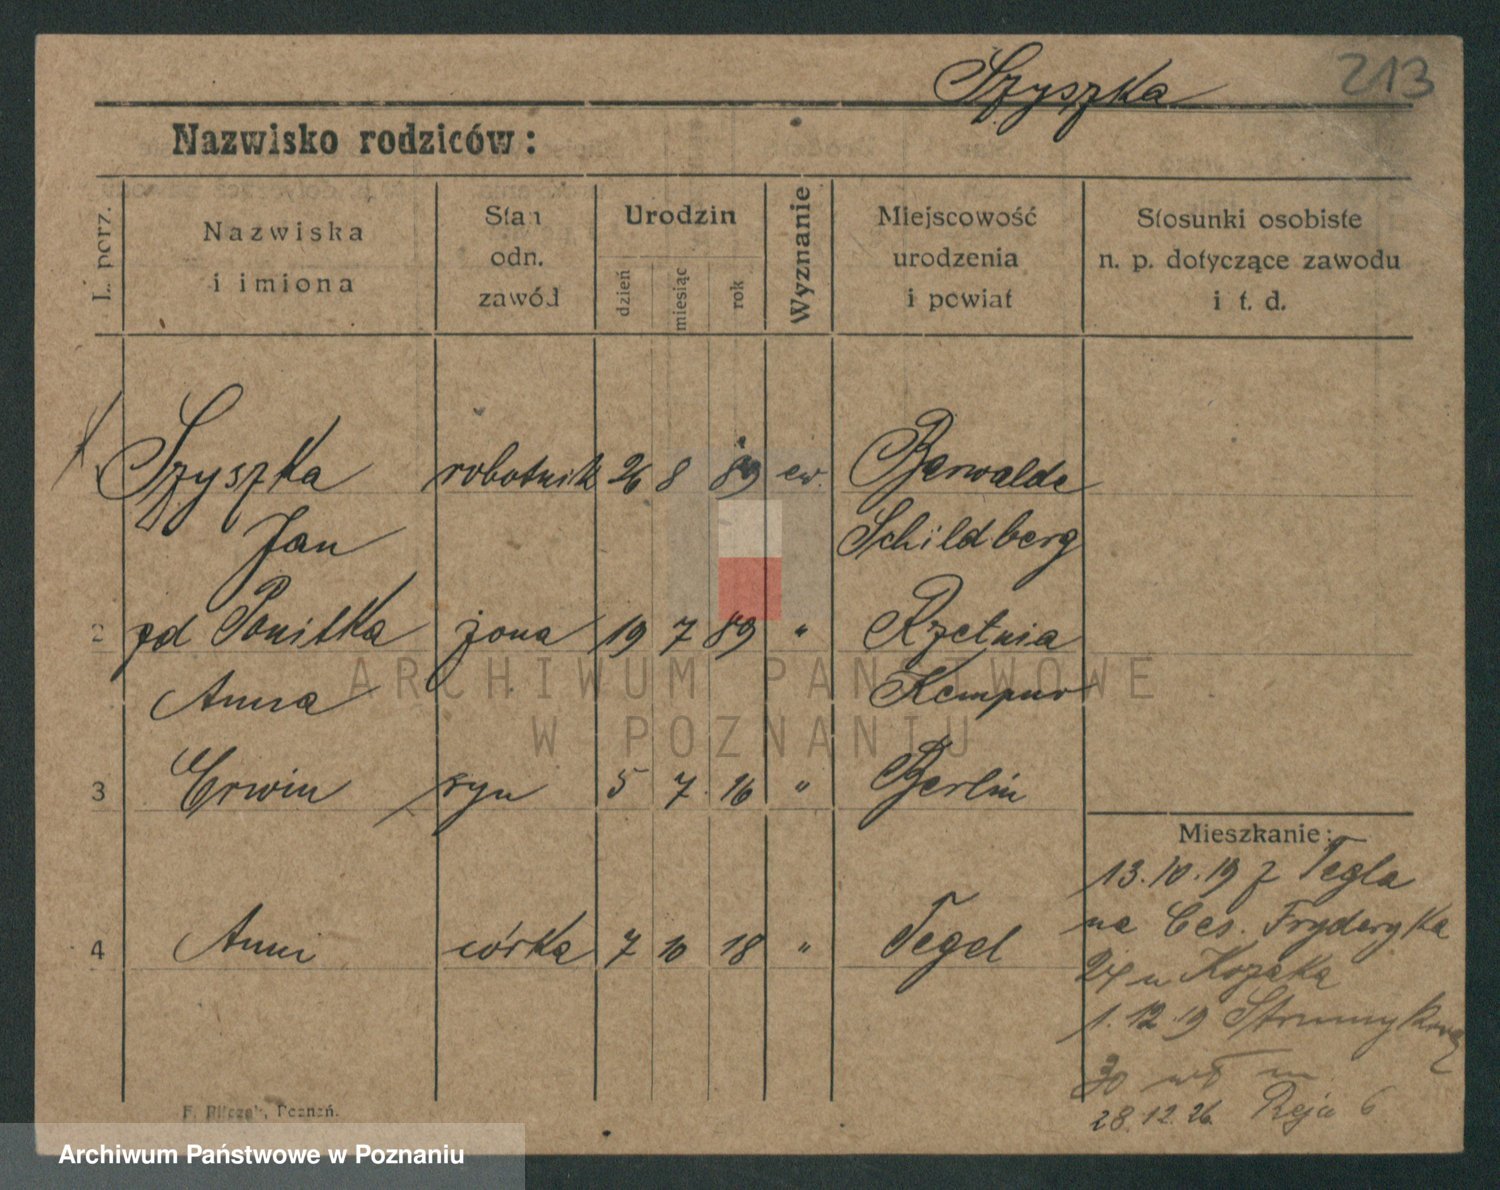 Szyszka 213
Nazwisko rodziców:
L. porz.
Nazwiska
i imiona
Stan
odn.
zawód
Urodzin
dzień
miesiąc
rok
Wyznanie
Miejscowość
urodzenia
i powiat
Stosunki osobiste
n. p. dotyczące zawodu
i t. d.
Szyszka robotnik 26 8 89 ew. Berwalde
Jan Schildberg
2 zd Ponitka żona 19 7 89 " Rzetnia
Anna Kempno
3 Erwin syn 5 7 16 " Berlin
4 Anni córka 7 10 18 " Tegel
Mieszkanie:
13.10.19 z Tegla
na Ces. Fryderyka
24 u Kozaka
1.12.19
30 wł m.
28.12.26. Reja 6
F. Pilczak, Poznań.
ARCHIWUM PAŃSTWOWE
W POZNANIU
Archiwum Państwowe w Poznaniu